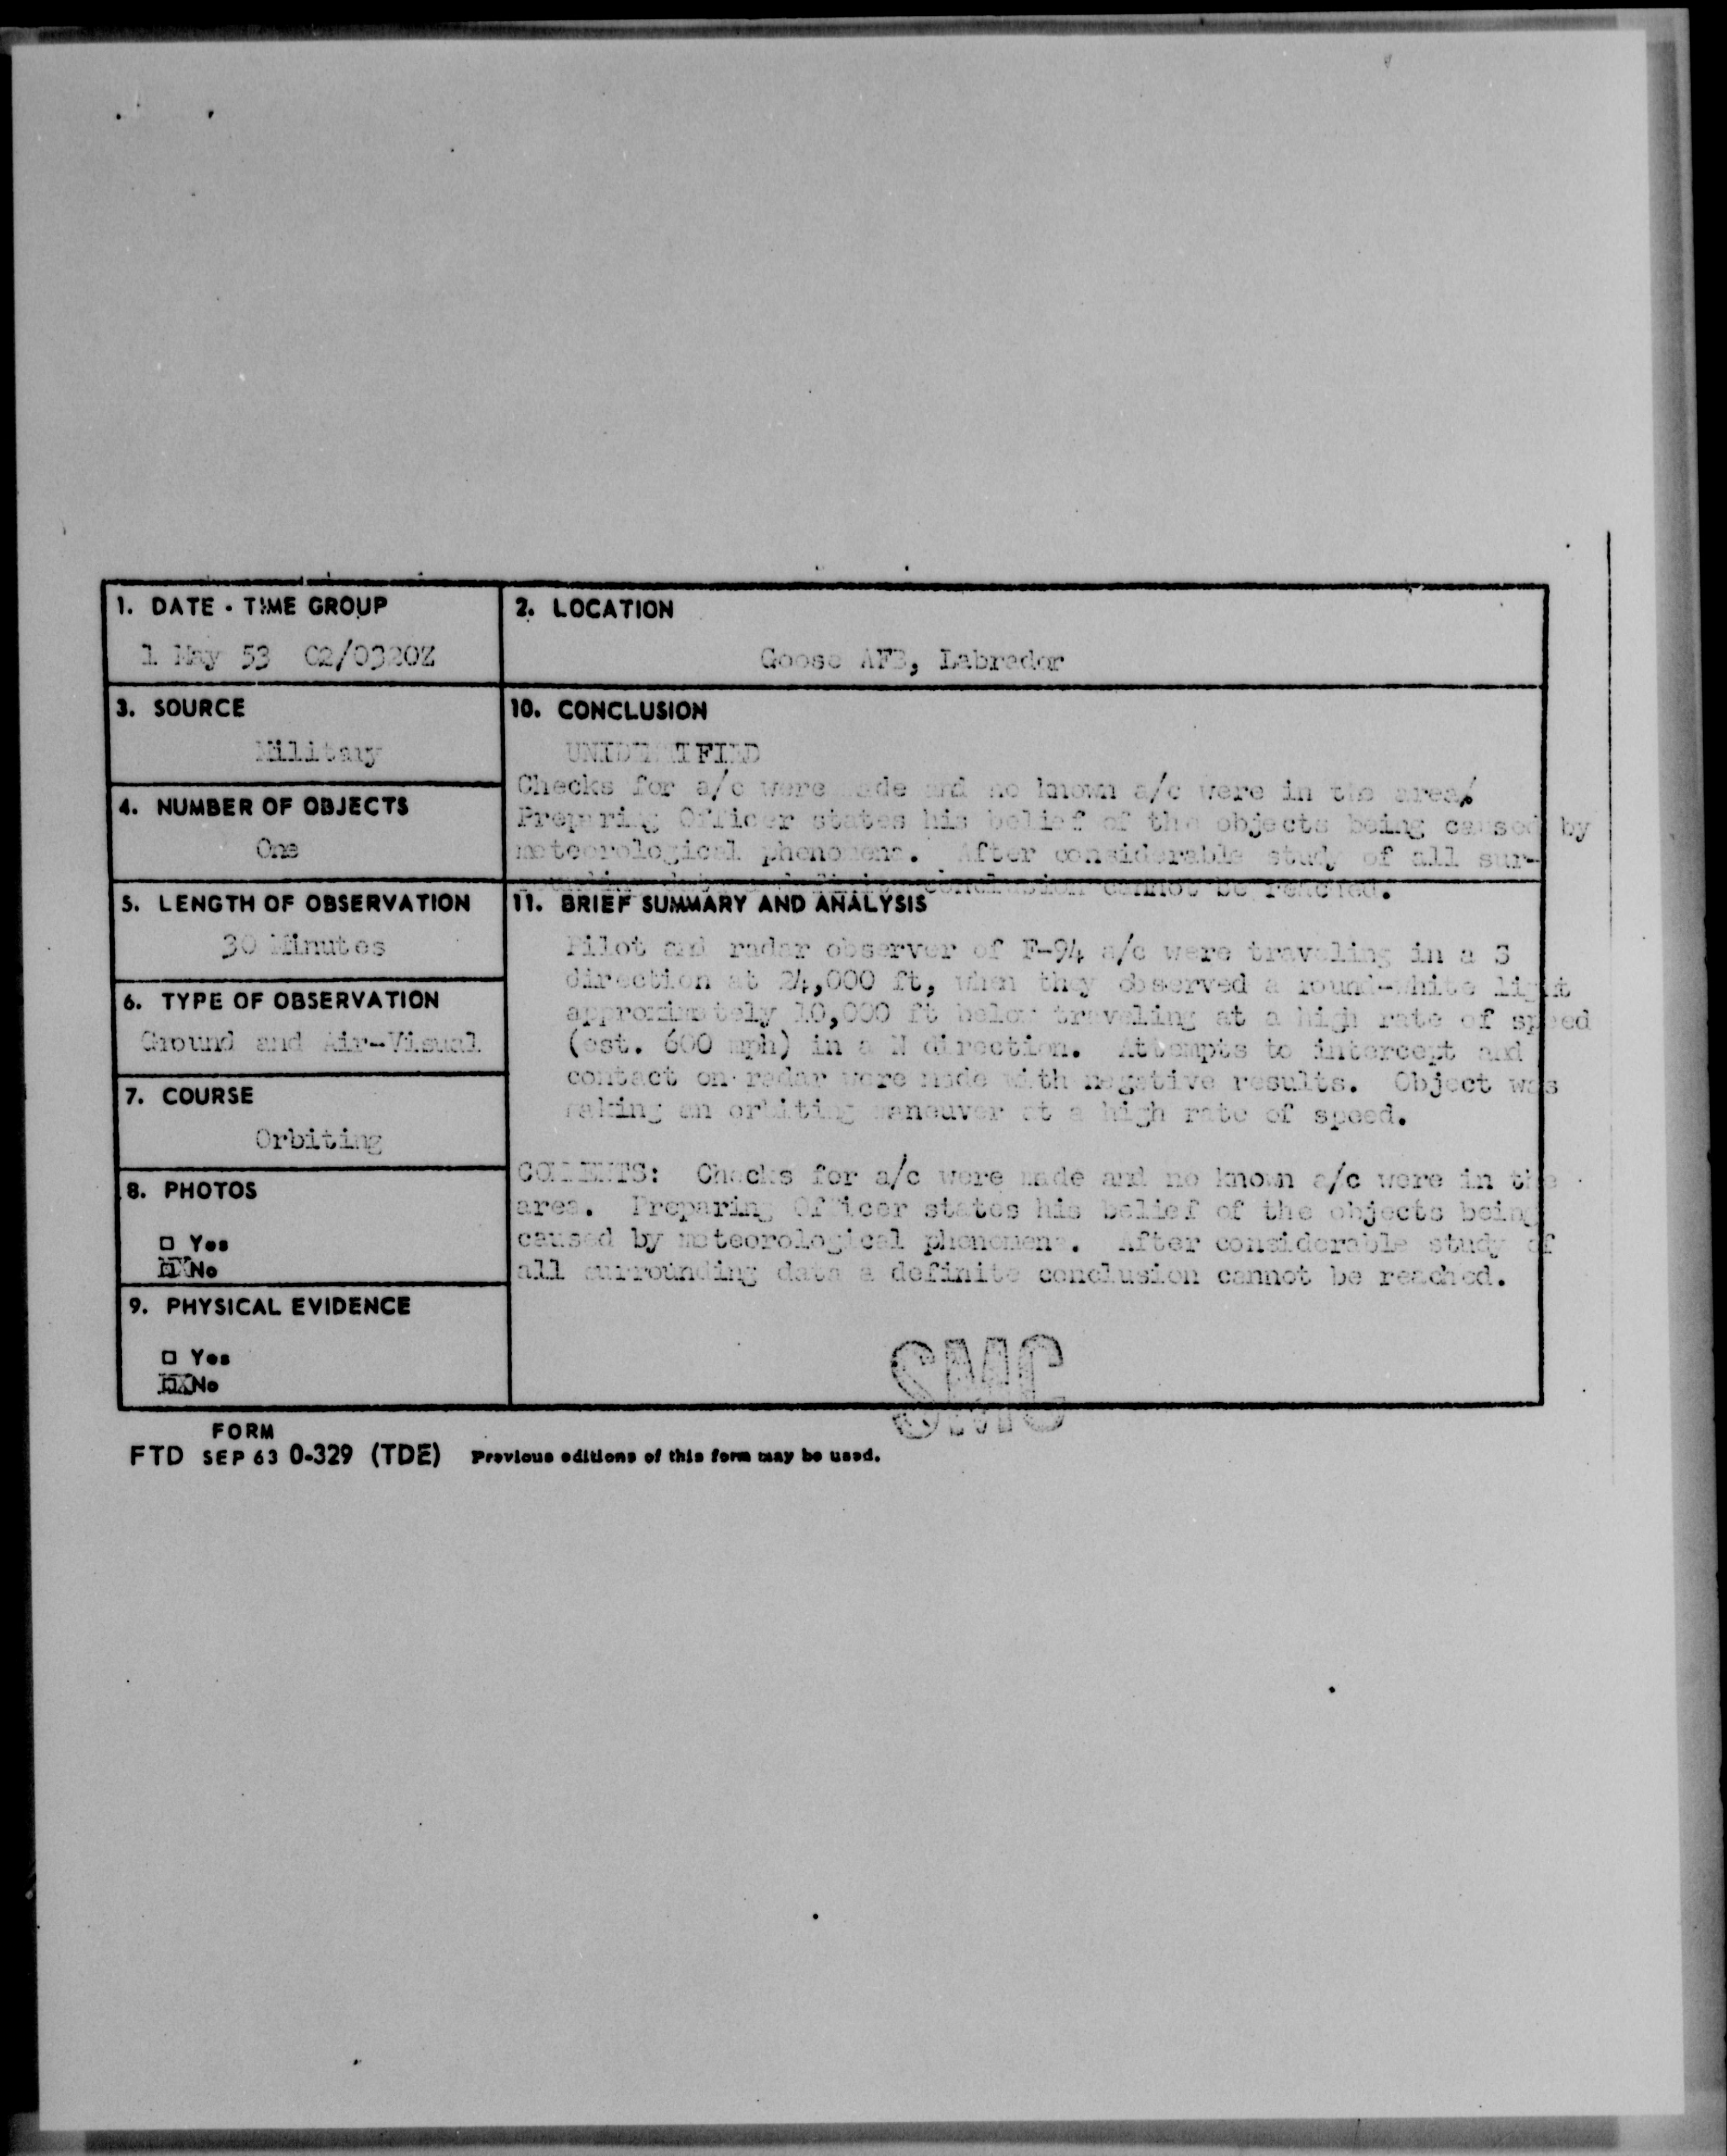 1. DATE - TIME GROUP
1 May 53 02/0320Z
2. LOCATION
Goose AFB, Labrador
3. SOURCE
Military
10. CONCLUSION
UNIDENTIFIED
Checks for a/c were made and no known a/c were in the area
Preparing Officer states his belief of the objects being caused by
meteorological phenomena. After considerable study of all sur-
conclusion cannot be reached.
4. NUMBER OF OBJECTS
One
5. LENGTH OF OBSERVATION
30 Minutes
11. BRIEF SUMMARY AND ANALYSIS
Pilot and radar observer of F-94 a/c were traveling in a S
direction at 24,000 ft, when they observed a round-white light
approximately 10,000 ft below traveling at a high rate of speed
(est. 600 mph) in a N direction. Attempts to intercept and
contact on radar were made with negative results. Object was
making an orbiting maneuver at a high rate of speed.
COMMENTS: Checks for a/c were made and no known a/c were in the
area. Preparing Officer states his belief of the objects being
caused by meteorological phenomena. After considerable study of
all surrounding data a definite conclusion cannot be reached.
6. TYPE OF OBSERVATION
Ground and Air-Visual
7. COURSE
Orbiting
8. PHOTOS
□ Yes
☒ No
9. PHYSICAL EVIDENCE
□ Yes
☒ No
SMC
FORM
FTD SEP 63 0-329 (TDE) Previous editions of this form may be used.